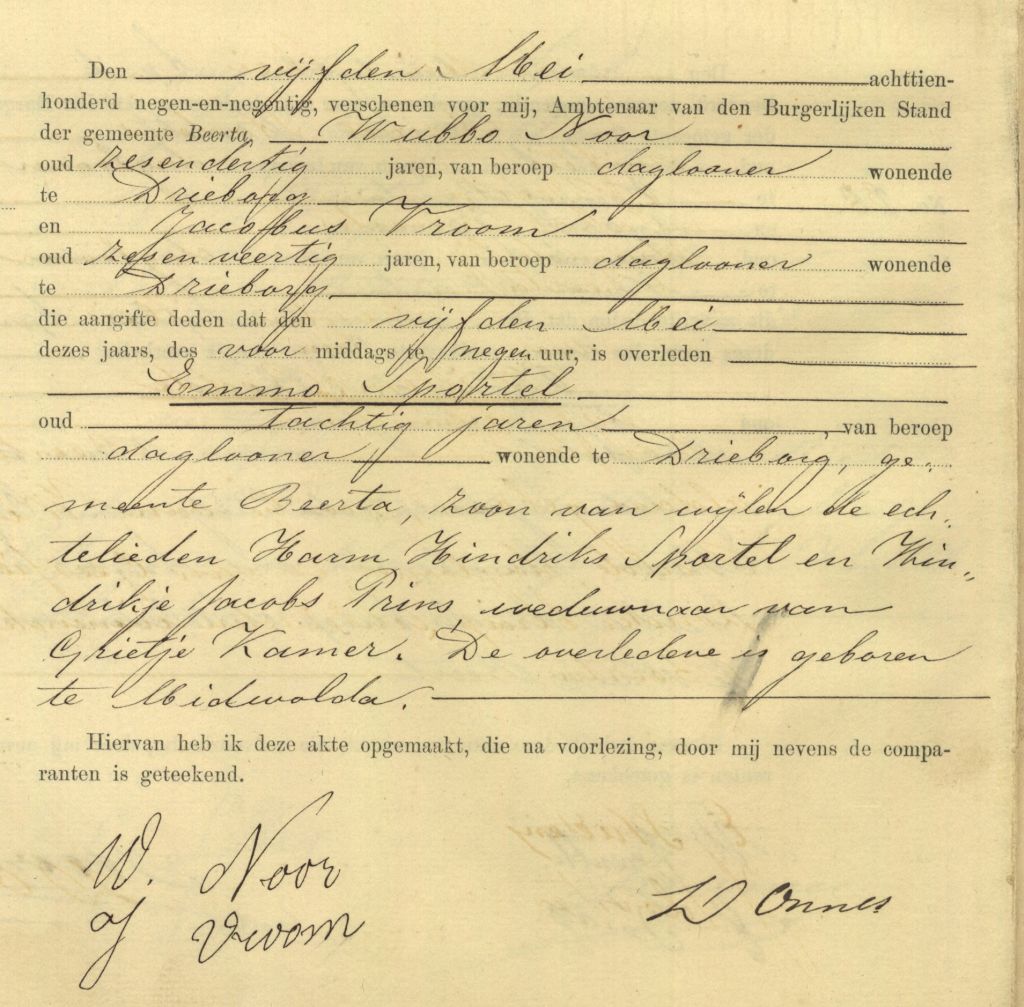 Den vijfden Mei achttien-
honderd negen-en-negentig, verschenen voor mij, Ambtenaar van den Burgerlijken Stand
der gemeente Beerta, Wubbo Noor
oud zesendertig jaren, van beroep daglooner wonende
te Drieborg
en Jacobus Vroom
oud zesenveertig jaren, van beroep daglooner wonende
te Drieborg
die aangifte deden dat den vijfden Mei
dezes jaars, des voor middags te negen uur, is overleden
Emmo Sportel
oud tachtig jaren, van beroep
daglooner wonende te Drieborg, ge-
meente Beerta, zoon van wijlen de ech-
telieden Harm Hindriks Sportel en Hin-
drikje Jacobs Prins, weduwnaar van
Grietje Kamer. De overledene is geboren
te Midwolda.
Hiervan heb ik deze akte opgemaakt, die na voorlezing, door mij nevens de compa-
ranten is geteekend.
W. Noor
J Vroom
D Onnes